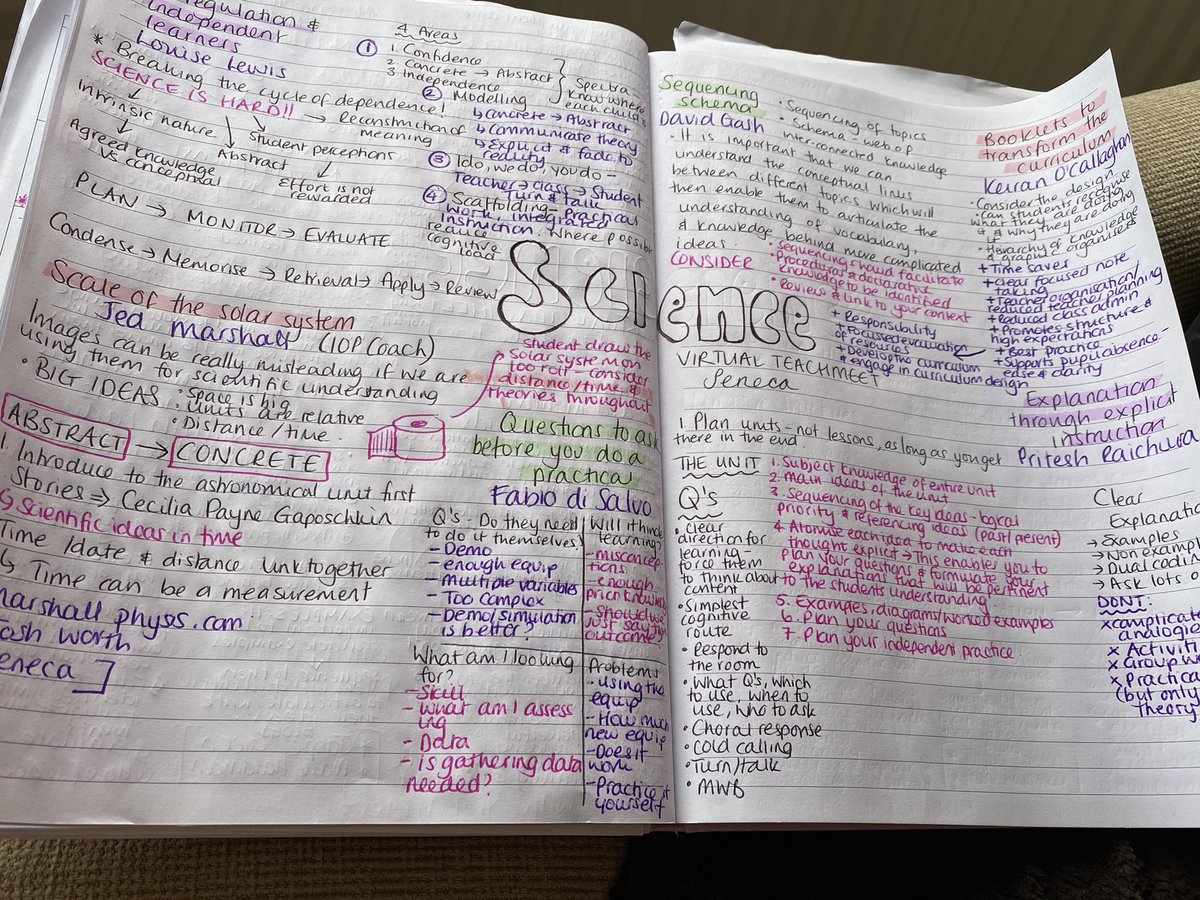 regulation &
independent
learners
Louise Lewis
* Breaking the cycle of dependence!
SCIENCE IS HARD!!
Intrinsic nature
Agreed knowledge
vs conceptual
Abstract
Student perceptions
Effort is not
rewarded
→ Reconstruction of
meaning
PLAN → MONITOR → EVALUATE
Condense → Memorise → Retrieval → Apply → Review
4 Areas
① 1. Confidence
2 Concrete → Abstract
3 Independence
Spectra
know where
each child is
② Modelling
↳ Concrete → Abstract
↳ Communicate theory
↳ Explicit & fade to
reality
③ I do, we do, you do –
Teacher → class → Student
Turn & talk
④ Scaffolding – Practical
work, integrated
instruction. Where possible
reduce
cognitive
load
Scale of the solar system
Jed Marshall (IOP Coach)
Images can be really misleading if we are
using them for scientific understanding
• BIG IDEAS • Space is big
• Units are relative
• Distance/time.
ABSTRACT → CONCRETE
Student draw the
solar system on
loo roll – consider
distance/time &
theories throughout
1 Introduce to the astronomical unit first
Stories ⇒ Cecilia Payne Gaposchkin
↳ Scientific ideas in time
Time/date & distance link together
↳ Time can be a measurement
marshall physs.com
Seneca
Science
VIRTUAL TEACHMEET
Seneca
Questions to ask
before you do a
practical
Fabio di Salvo
Q's - Do they need
to do it themselves?
- Demo
- enough equip
- multiple variables
- Too complex
- Demo/simulation
is better?
Will it
learning?
- misconcep
tions
- enough
prior knowledge
- Should we
just say the
outcome?
What am I looking
for?
- Skill
- What am I assess
ing
- Data
- is gathering data
needed?
Problems
• using the
equip
- How much
new equip
- Does it
work
- Practice it
yourself
Sequencing
schema
David Gash
• Sequencing of topics
• Schema - web of
inter-connected knowledge
• It is important that we can
understand the conceptual links
between different topics which will
then enable them to articulate the
understanding of vocabulary,
& knowledge behind more complicated
ideas.
CONSIDER
• Sequencing should facilitate
• Procedural & declarative
knowledge to be identified
• Review & link to your context
Booklets to
transform the
curriculum
Keiran O'Callaghan
• Consider the design
• Can students recognise
what they are doing
& why they are doing
it
• Hierarchy of knowledge
& graphic organisers
+ Time savers
+ clear focused note
taking
+ Teacher organisation/
reduced teacher planning
+ Reduced class admin
+ Promotes structure &
high expectations
+ Best practice
+ Supports pupil absence –
ease & clarity
+ Responsibility
+ Focused evaluation
of resources
+ Develop the curriculum
+ engage in curriculum design
Explanation
through explicit
instruction
Pritesh Raichura
1 Plan units – not lessons, as long as you get
there in the end
THE UNIT
1. Subject knowledge of entire unit
2. Main ideas of the unit
3. Sequencing of the key ideas - logical
priority & referencing ideas (past/present)
4 Atomise each idea to make each
thought explicit → This enables you to
plan your questions & formulate your
explanations that will be pertinent
to the students understanding
5. Examples, diagrams/worked examples
6. Plan your questions
7. Plan your independent practice
Q's
• clear
direction for
learning –
force them
to think about
content
• Simplest
cognitive
route
• Respond to
the room
• What Q's, which
to use, when to
use, who to ask
• Choral response
• Cold calling
• Turn/talk
• MWB
Clear
Explanatio
→ Examples
→ Non exampl
→ Dual codin
→ Ask lots o
DONT:
x complicate
analogie
x Activiti
x Group w
x Practica
(but only
theory)